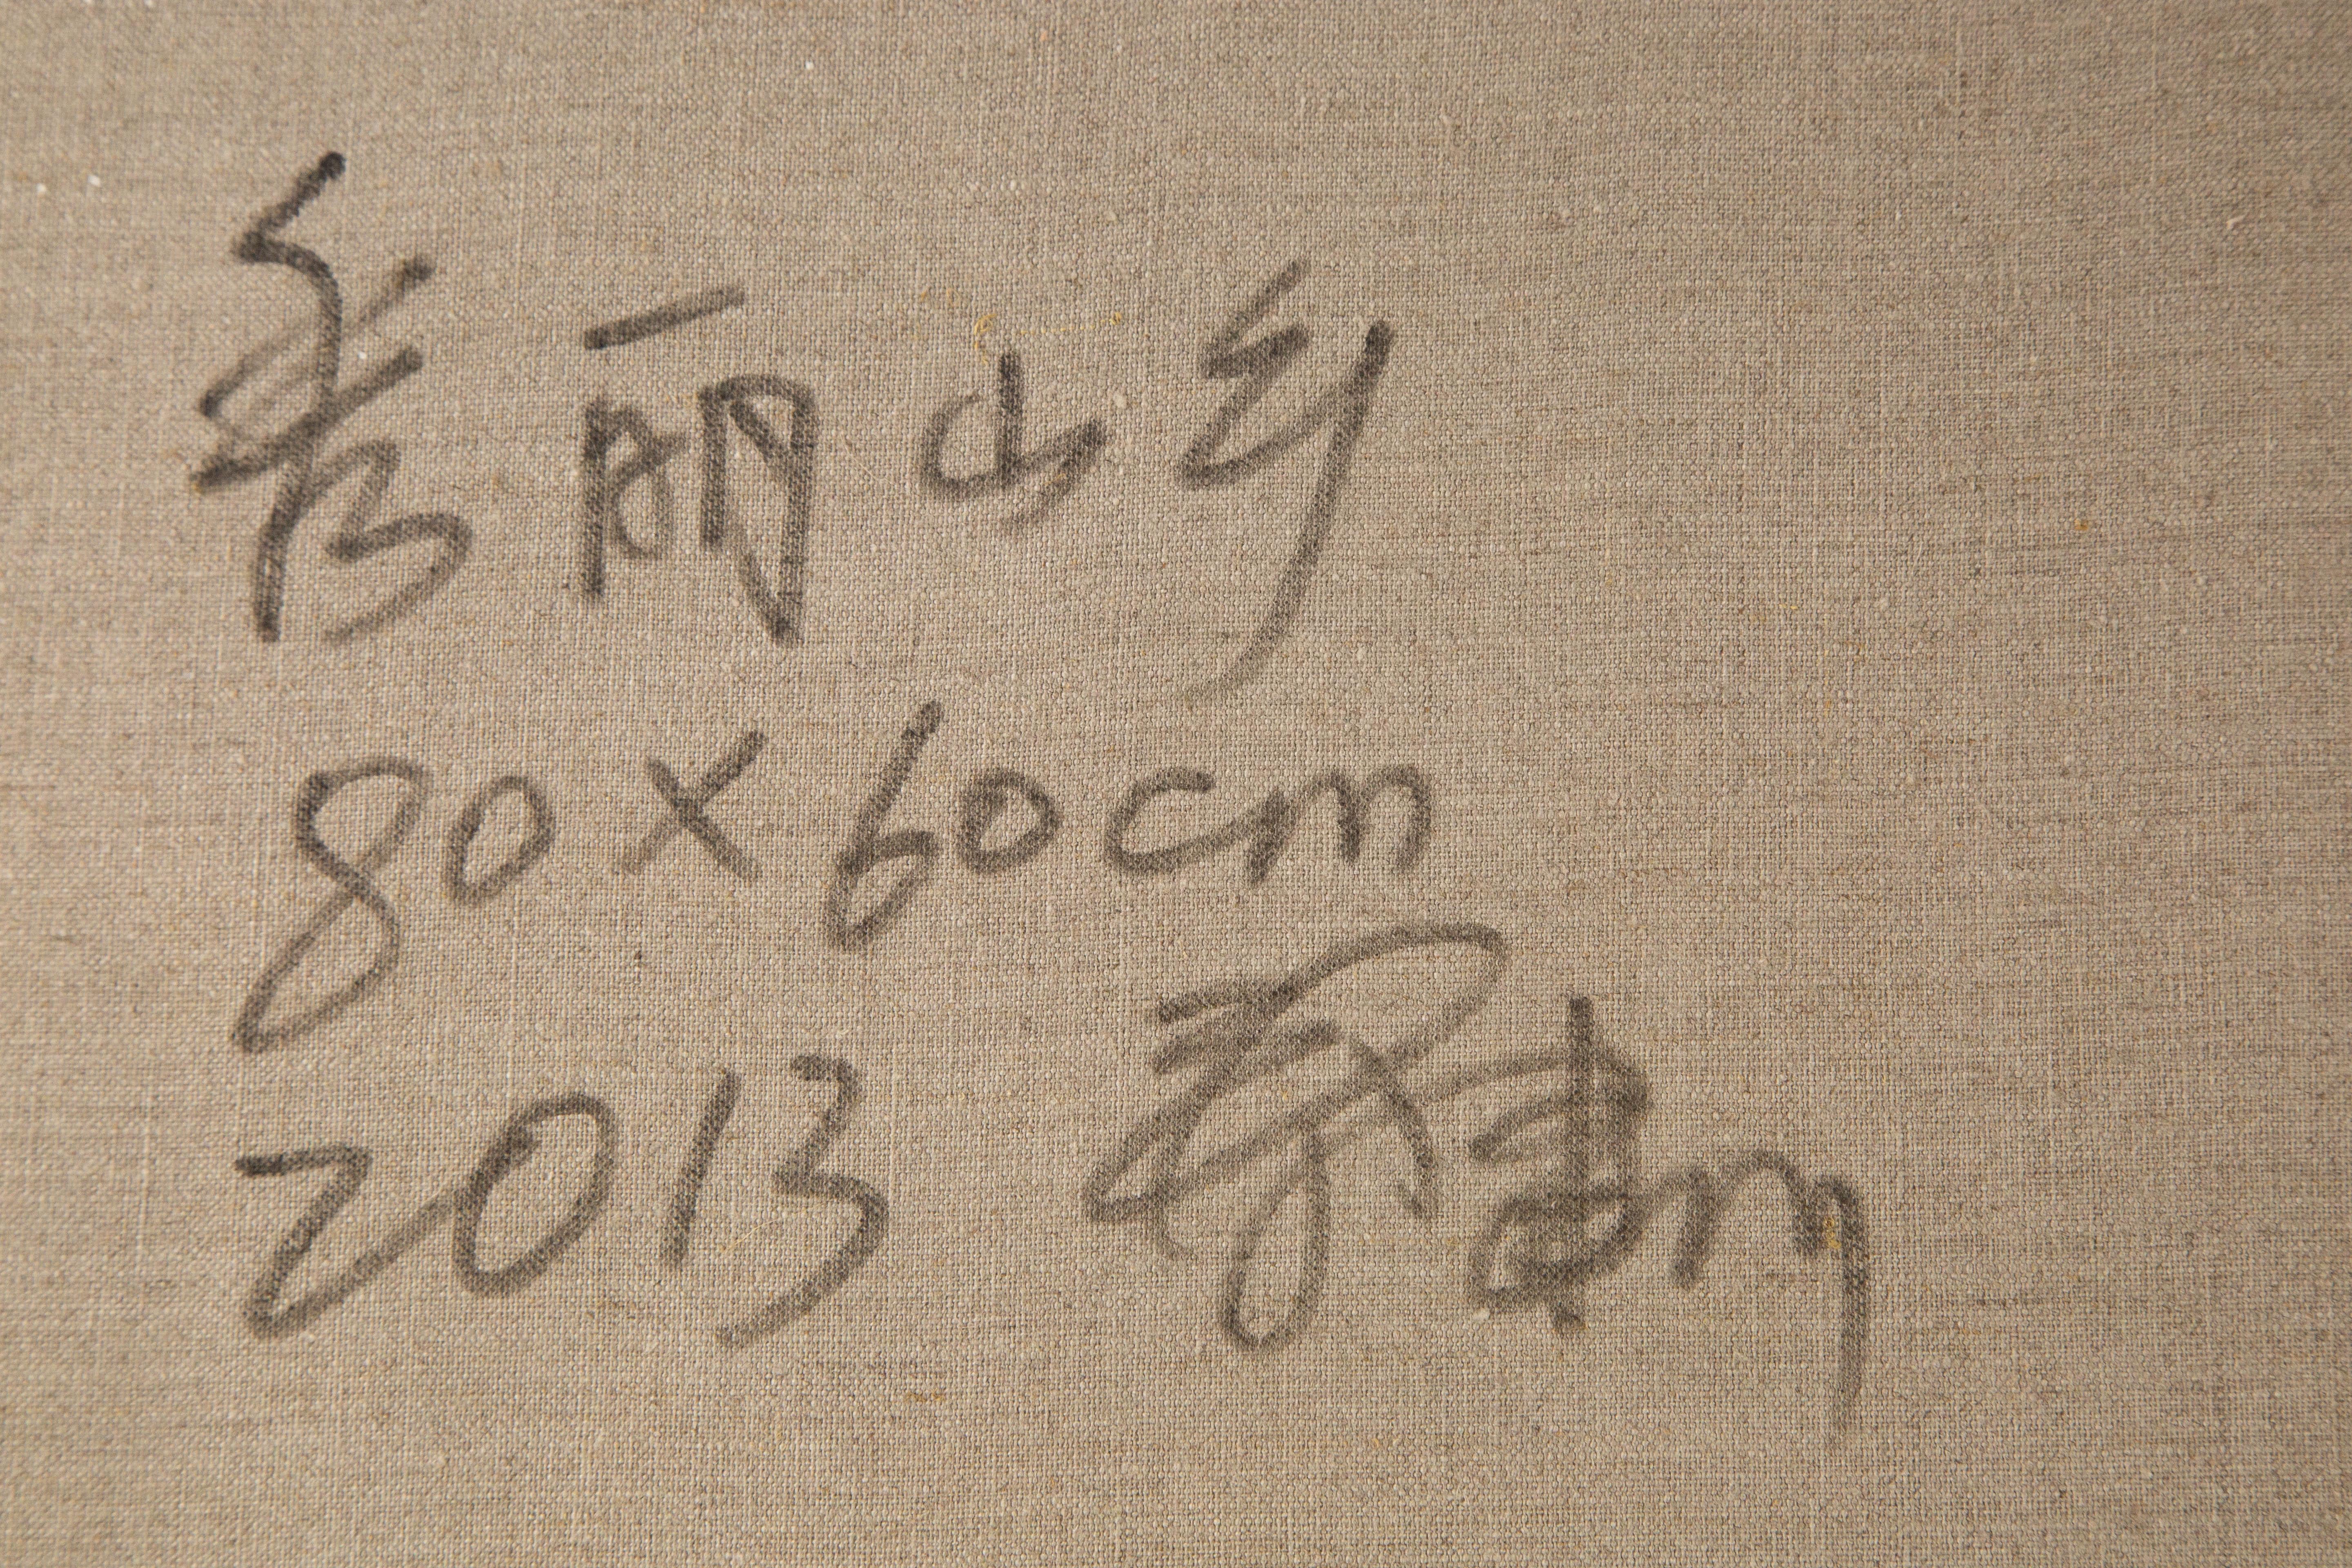 秀丽山乡
80×60cm
2013